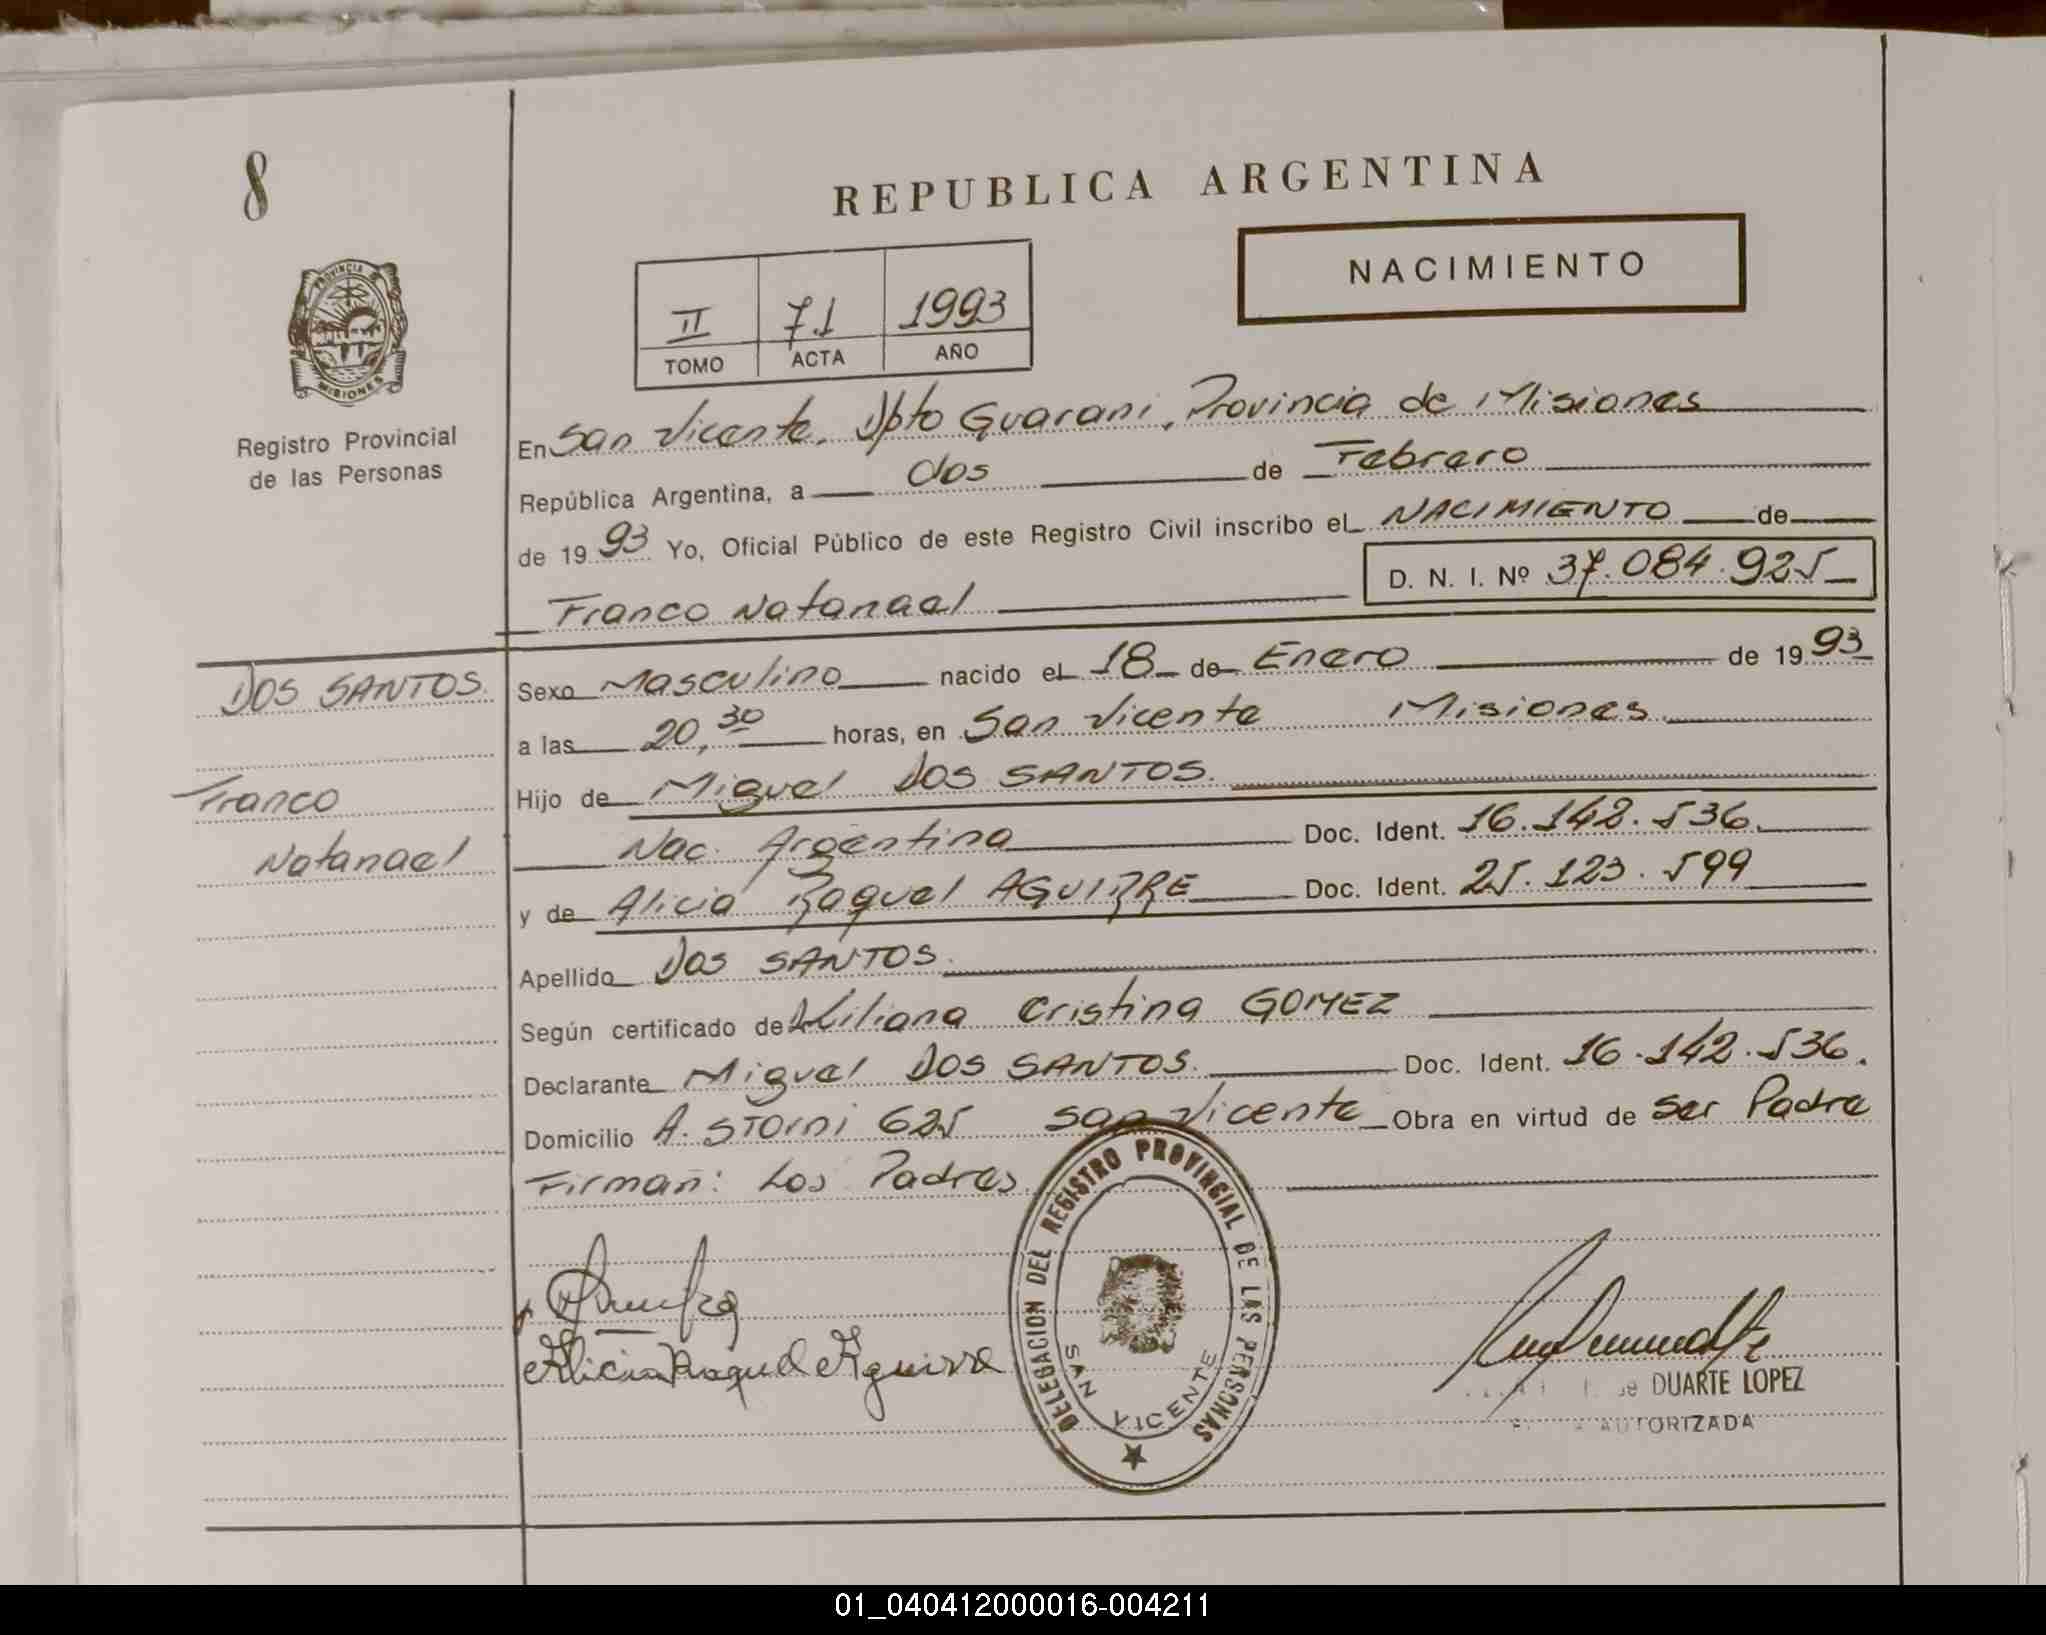 8
REPUBLICA ARGENTINA
NACIMIENTO
II 71 1993
TOMO ACTA AÑO
PROVINCIA DE
MISIONES
Registro Provincial
de las Personas
En San Vicente, Dpto Guarani, Provincia de Misiones
República Argentina, a dos de Febrero
de 19 93 Yo, Oficial Público de este Registro Civil inscribo el NACIMIENTO de
D. N. I. Nº 37.084.925
Franco Natanael
DOS SANTOS
Franco
Natanael
Sexo Masculino nacido el 18 de Enero de 19 93
a las 20,30 horas, en San Vicente Misiones
Hijo de Miguel DOS SANTOS.
Nac. Argentina Doc. Ident. 16.142.536
y de Alicia Raquel AGUIRRE Doc. Ident. 25.123.599
Apellido DOS SANTOS.
Según certificado de Liliana Cristina GOMEZ
Declarante Miguel DOS SANTOS. Doc. Ident. 16.142.536.
Domicilio A. STorni 625 San Vicente Obra en virtud de ser Padre
Firman: Los Padres
Alicia Raquel Aguirre
DELEGACION DEL REGISTRO PROVINCIAL DE LAS PERSONAS
SAN VICENTE
de DUARTE LOPEZ
AUTORIZADA
01_040412000016-004211